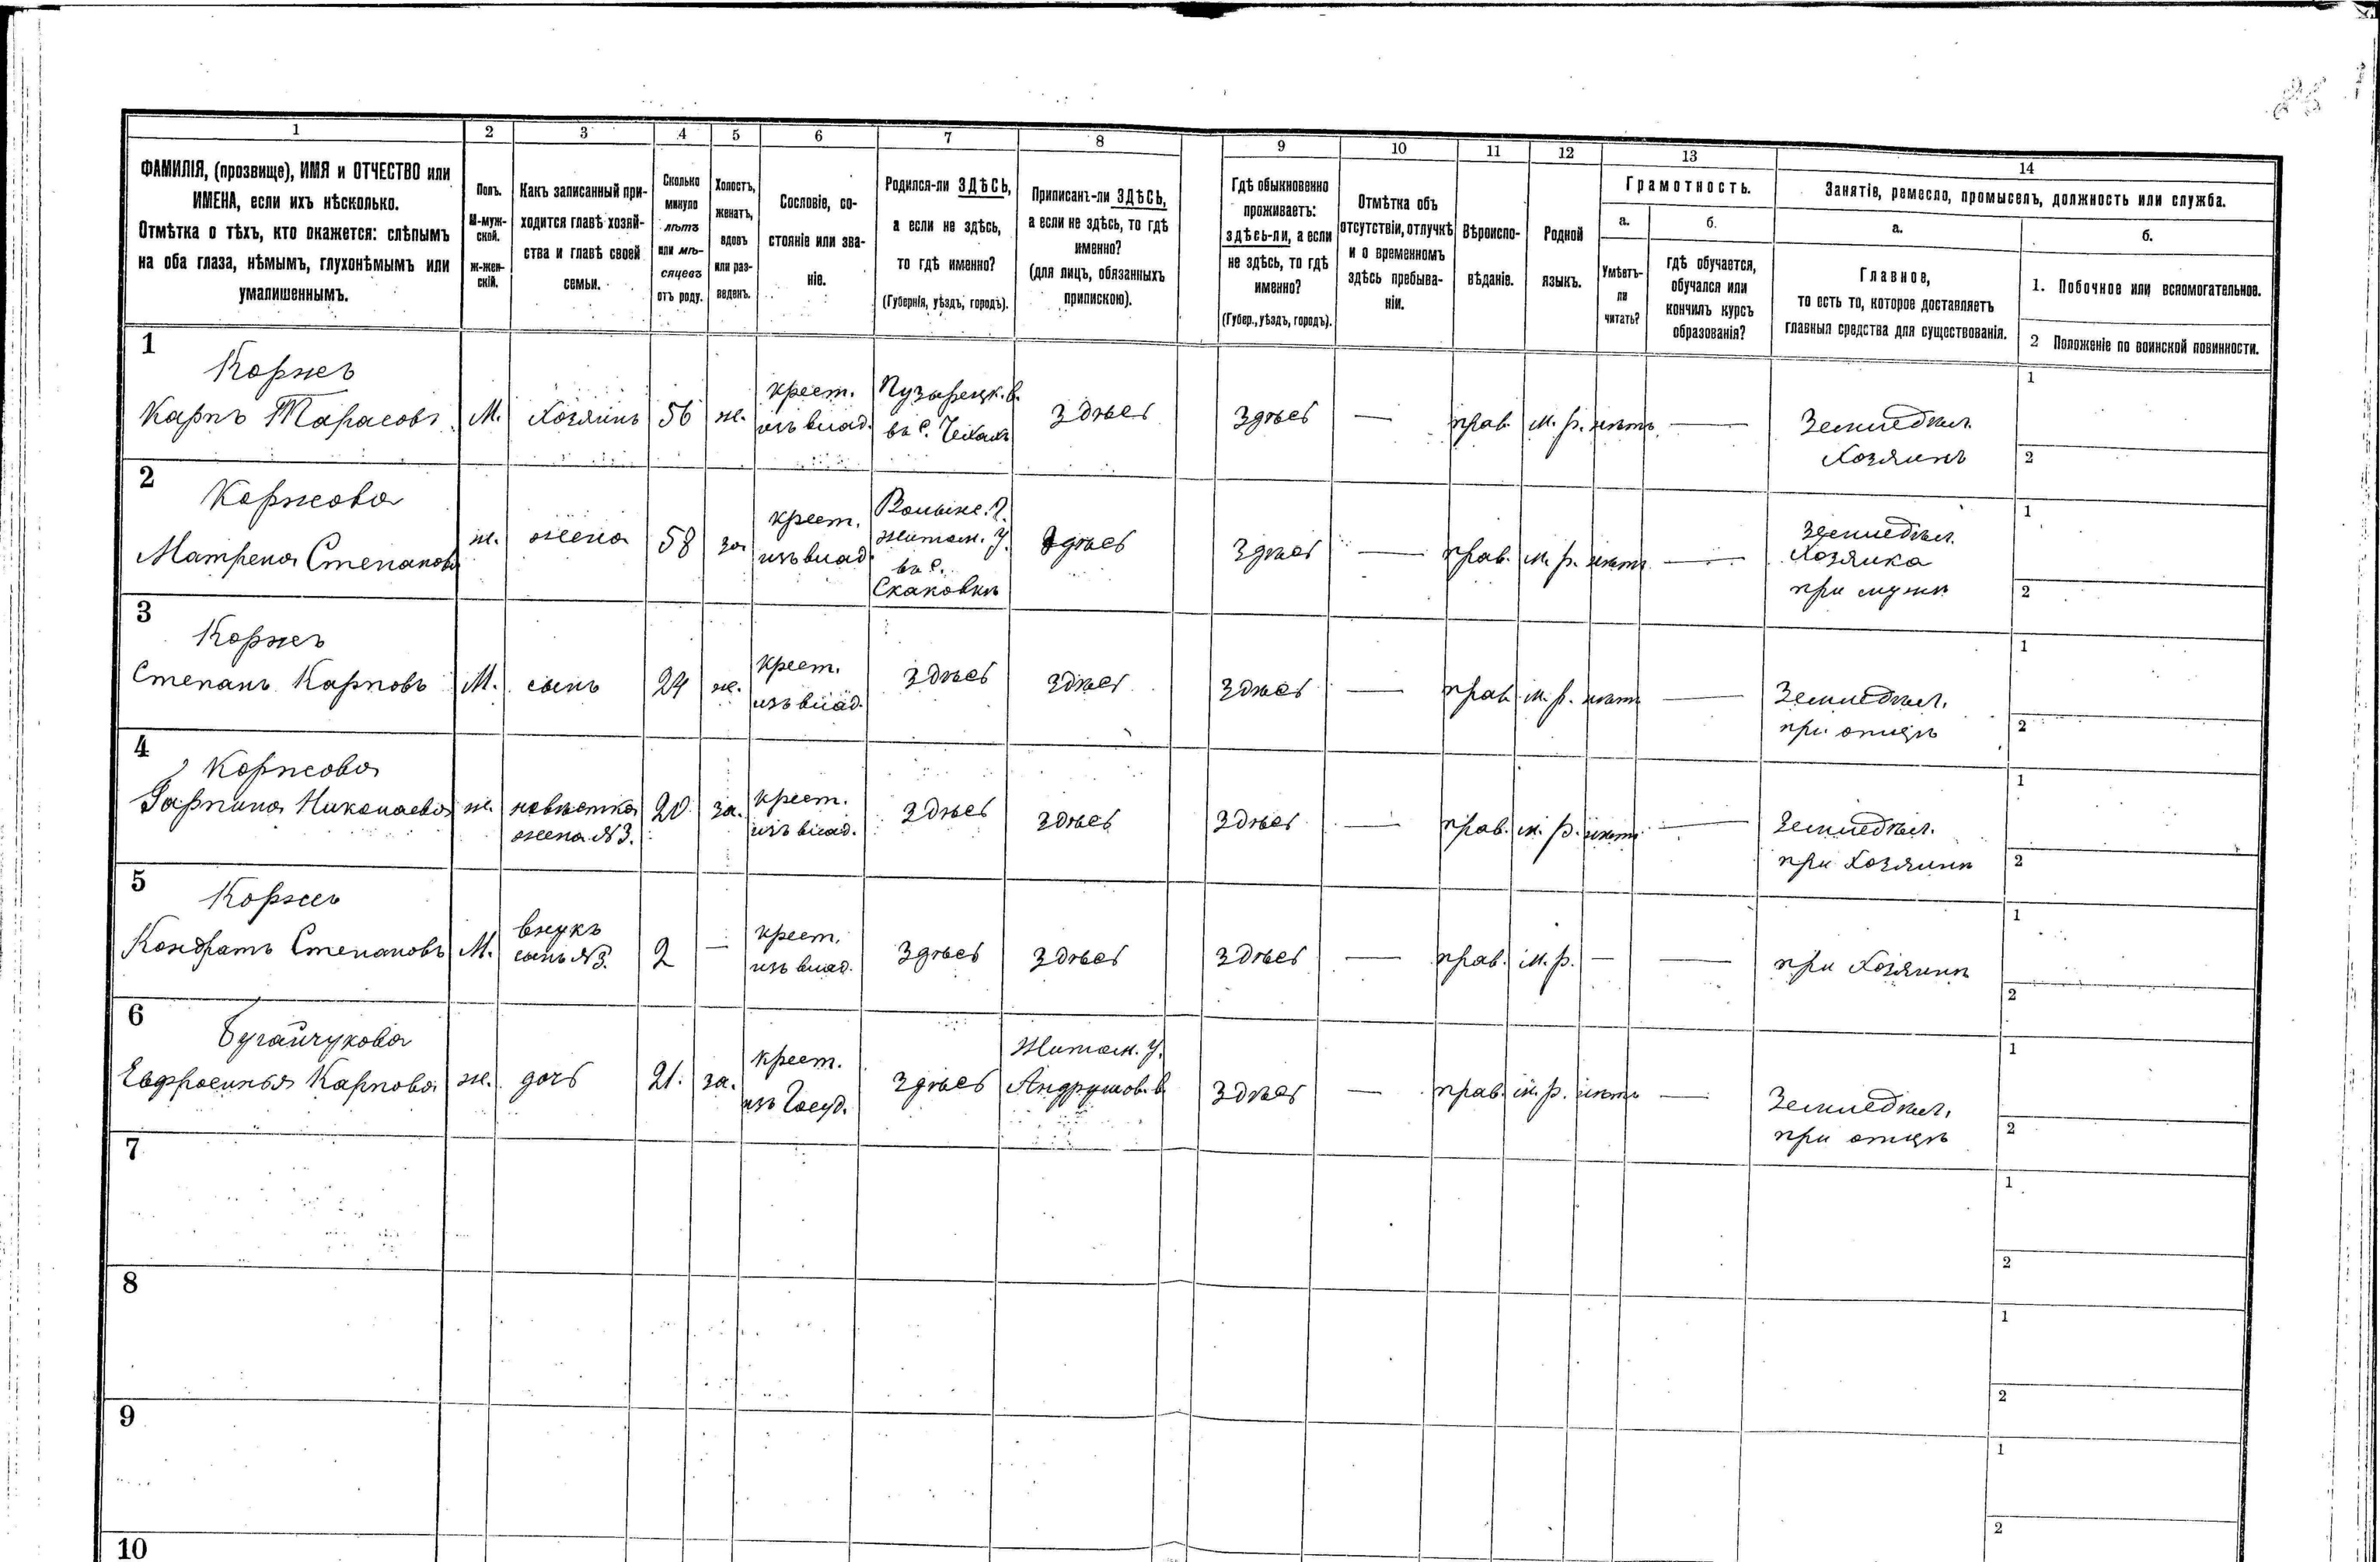 1 2 3 4 5 6 7 8 9 10 11 12 13 14
ФАМИЛІЯ, (прозвище), ИМЯ и ОТЧЕСТВО или
ИМЕНА, если ихъ нѣсколько.
Отмѣтка о тѣхъ, кто окажется: слѣпымъ
на оба глаза, нѣмымъ, глухонѣмымъ или
умалишеннымъ.
Полъ.
М-муж-
ской.
Ж-жен-
скій.
Какъ записанный при-
ходится главѣ хозяй-
ства и главѣ своей
семьи.
Сколько
минуло
лѣтъ
или мѣ-
сяцевъ
отъ роду.
Холостъ,
женатъ,
вдовъ
или раз-
веденъ.
Сословіе, со-
стояніе или зва-
ніе.
Родился-ли ЗДѢСЬ,
а если не здѣсь,
то гдѣ именно?
(Губернія, уѣздъ, городъ).
Приписанъ-ли ЗДѢСЬ,
а если не здѣсь, то гдѣ
именно?
(для лицъ, обязанныхъ
припискою).
Гдѣ обыкновенно
проживаетъ:
здѣсь-ли, а если
не здѣсь, то гдѣ
именно?
(Губер., уѣздъ, городъ).
Отмѣтка объ
отсутствіи, отлучкѣ
и о временномъ
здѣсь пребыва-
ніи.
Вѣроиспо-
вѣданіе.
Родной
языкъ.
Грамотность.
а.
Умѣетъ-
ли
читать?
б.
гдѣ обучается,
обучался или
кончилъ курсъ
образованія?
Занятіе, ремесло, промыселъ, должность или служба.
а.
Главное,
то есть то, которое доставляетъ
главныя средства для существованія.
б.
1. Побочное или вспомогательное.
2 Положеніе по воинской повинности.
1
Коржъ
Карпъ Тарасовъ
М.
Хозяинъ
56
ж.
крест.
изъ влад.
Пузырецк. в.
въ с. Чехахъ
Здѣсь
Здѣсь
—
прав.
м. р.
нѣтъ
—
Земледѣл.
Хозяинъ
1
2
2
Коржова
Матрена Степанова
ж.
жена
58
за
крест.
изъ влад.
Волынс. г.
Житом. у.
въ с.
Скаковкѣ
Здѣсь
Здѣсь
—
прав.
м. р.
нѣтъ
—
Земледѣл.
Хозяйка
при мужѣ
1
2
3
Коржъ
Степанъ Карповъ
М.
сынъ
24
ж.
крест.
изъ влад.
Здѣсь
Здѣсь
Здѣсь
—
прав.
м. р.
нѣтъ
—
Земледѣл.
при отцѣ
1
2
4
Коржова
Гарпина Николаева
ж.
невѣстка
жена №3.
20
за.
крест.
изъ влад.
Здѣсь
Здѣсь
Здѣсь
—
прав.
м. р.
нѣтъ
—
Земледѣл.
при Хозяинѣ
1
2
5
Коржъ
Кондратъ Степановъ
М.
внукъ
сынъ №3.
2
—
крест.
изъ влад.
Здѣсь
Здѣсь
Здѣсь
—
прав.
м. р.
—
—
при Хозяинѣ
1
2
6
Бугайчукова
Евфросинья Карпова
ж.
дочь
21.
за.
крест.
изъ Госуд.
Здѣсь
Житом. у.
Андрушов. в
Здѣсь
—
прав.
м. р.
нѣтъ
—
Земледѣл.
при отцѣ
1
2
7
1
2
8
1
2
9
1
2
10